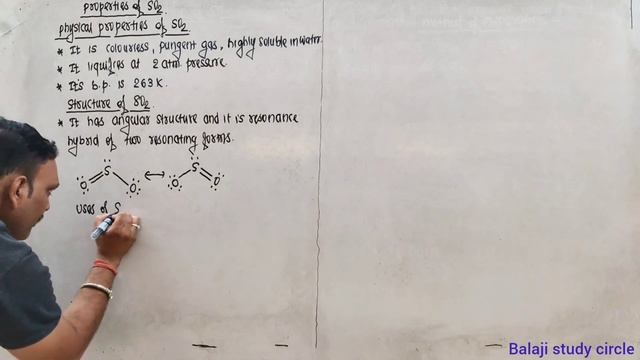 properties of SO2
physical properties of SO2.
* It is colourless, pungent gas, highly soluble in water.
* It liquifies at 2 atm pressure.
* It's b.p. is 263 K.
structure of SO2.
* It has angular structure and it is resonance
hybrid of two resonating forms.
S S
O O ↔ O O
Uses of S
Balaji study circle